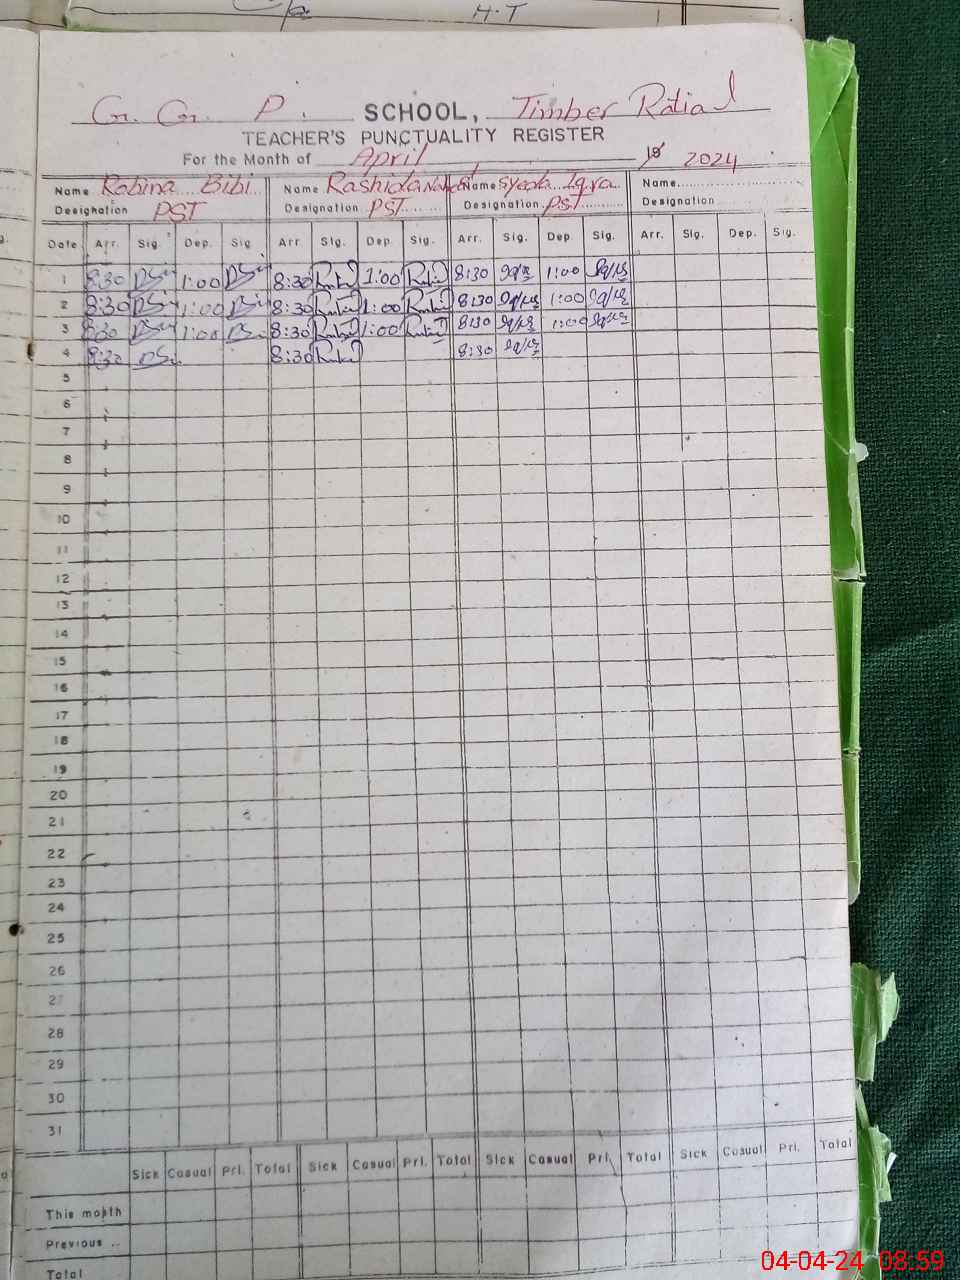 H.T
G. G. P. SCHOOL, Timber Ratial
TEACHER'S PUNCTUALITY REGISTER
For the Month of April 19 2024
Name Robina Bibi Name Rashida Name Syeda Iqra Name
Designation PST Designation PST Designation PST Designation
Date Arr. Sig. Dep. Sig Arr. Sig. Dep. Sig. Arr. Sig. Dep. Sig. Arr. Sig. Dep. Sig.
1 8:30 1:00 8:30 1:00 8:30 1:00
2 8:30 1:00 8:30 1:00 8:30 1:00
3 8:30 1:00 8:30 1:00 8:30 1:00
4 8:30 8:30 8:30
5
6
7
8
9
10
11
12
13
14
15
16
17
18
19
20
21
22
23
24
25
26
27
28
29
30
31
Sick Casual Pri. Total Sick Casual Pri. Total Sick Casual Pri. Total Sick Casual Pri. Total
This month
Previous ..
Total
04-04-24 08:59